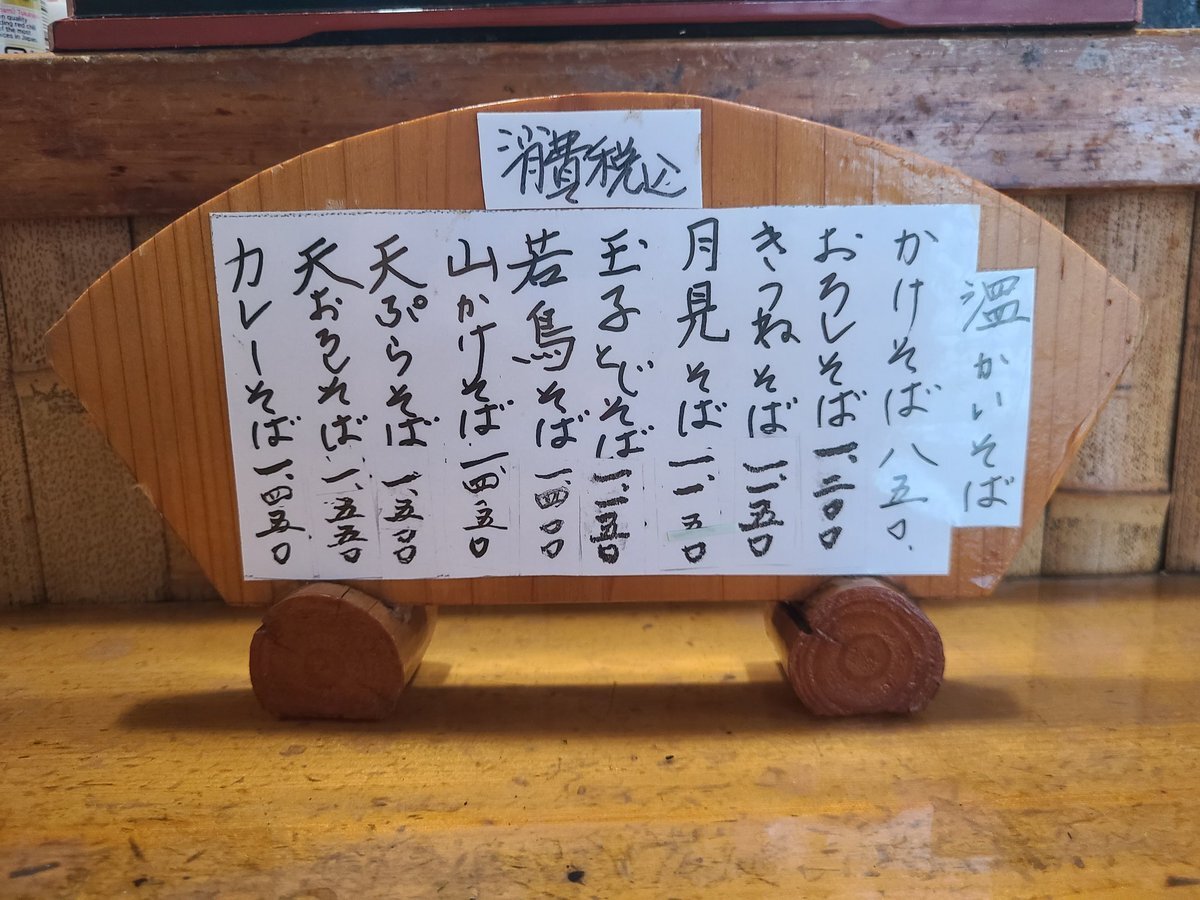 消費税込
温かいそば
かけそば 八五〇.
おろしそば 一、二〇〇
きつねそば 一、一五〇
月見そば 一、一五〇
玉子とじそば
若鳥そば 一、四〇〇
山かけそば 一、四五〇
天ぷらそば 一、五〇〇
天おろしそば 一、五五〇
カレーそば 一、四五〇
quality
red chili
of the most
in Japan.